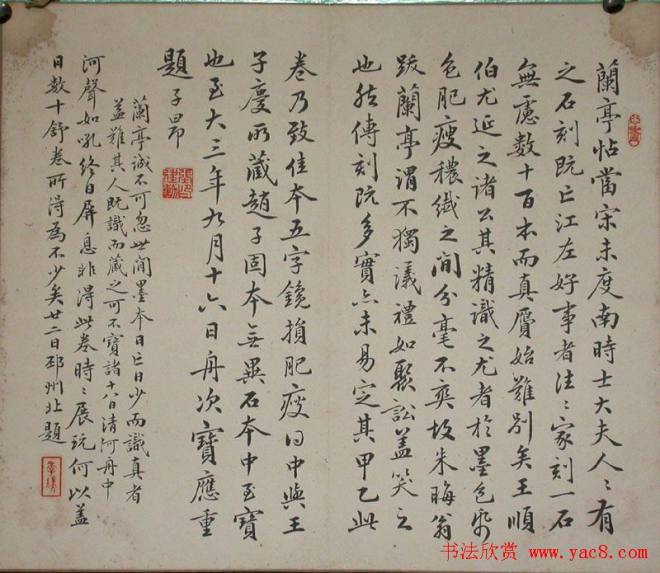 蘭亭帖當宋未度南時士大夫人〻有
之石刻既亡江左好事者往〻家刻一石
無慮數十百本而真贗始難別矣王順
伯尤延之諸公其精識之尤者於墨色紙
色肥瘦穠纖之間分毫不爽故朱晦翁
跋蘭亭謂不獨議禮如聚訟盖笑之
也然傳刻既多實亦未易定其甲乙此
卷乃致佳本五字鑱損肥瘦得中與王
子慶所藏趙子固本無異石本中至寶
也至大三年九月十六日舟次寶應重
題子昂
蘭亭誠不可忽世間墨本日亡日少而識真者
盖難其人既識而藏之可不寶諸十八日清河舟中
河聲如吼終日屏息非得此卷時〻展玩何以盖
日數十舒卷所得為不少矣廿二日邳州北題
书法欣赏 www.yac8.com